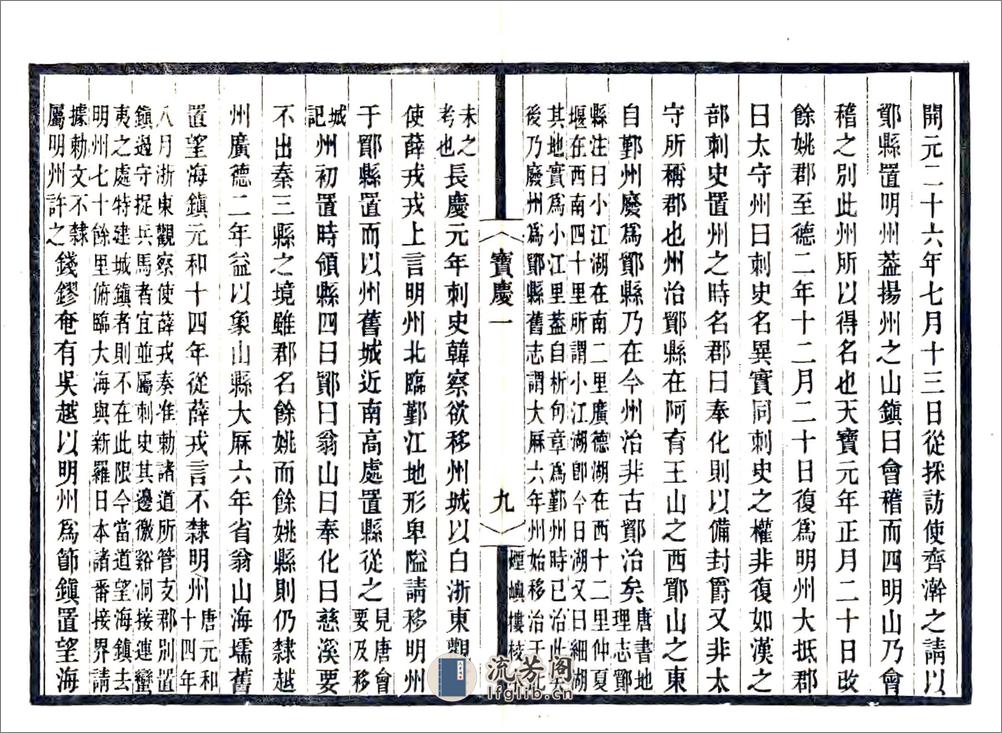 開元二十六年七月十三日從採訪使齊澣之請以
鄮縣置明州葢揚州之山鎮曰會稽而四明山乃會
稽之別此州所以得名也天寶元年正月二十日改
餘姚郡至德二年十二月二十日復爲明州大抵郡
曰太守州曰刺史名異實同刺史之權非復如漢之
部刺史置州之時名郡曰奉化則以備封爵又非太
守所稱郡也州治鄮縣在阿育王山之西鄮山之東
自鄞州廢爲鄮縣乃在今州治非古鄮治矣
唐書地
理志鄮
縣注曰小江湖在南二里廣德湖在西十二里仲夏
堰在西南四十里所謂小江湖卽今日湖又曰細湖
其地實爲小江里葢自析句章爲鄞州時已治此
後乃廢州爲鄮縣舊志謂大厤六年州始移治于
寶慶一
九
煙嶼樓校
未之
考也
長慶元年刺史韓察欲移州城以白浙東觀
使薛戎戎上言明州北臨鄞江地形卑隘請移明州
于鄮縣置而以州舊城近南高處置縣從之
見唐會
要及移
城
記
州初置時領縣四曰鄮曰翁山曰奉化曰慈溪要
不出秦三縣之境雖郡名餘姚而餘姚縣則仍隸越
州廣德二年益以象山縣大厤六年省翁山海壖舊
置望海鎮元和十四年從薛戎言不隸明州
唐元和
十四年
八月浙東觀察使薛戎奏准勅諸道所管支郡別置
鎮遏守捉兵馬者宜並屬刺史其邊徼谿洞接連蠻
夷之處特建城鎮者則不在此限今當道望海鎮去
明州七十餘里俯臨大海與新羅日本諸番接界請
據勅文不隸
屬明州許之
錢鏐奄有吳越以明州爲節鎮置望海
流芳阁
lfglib.cn